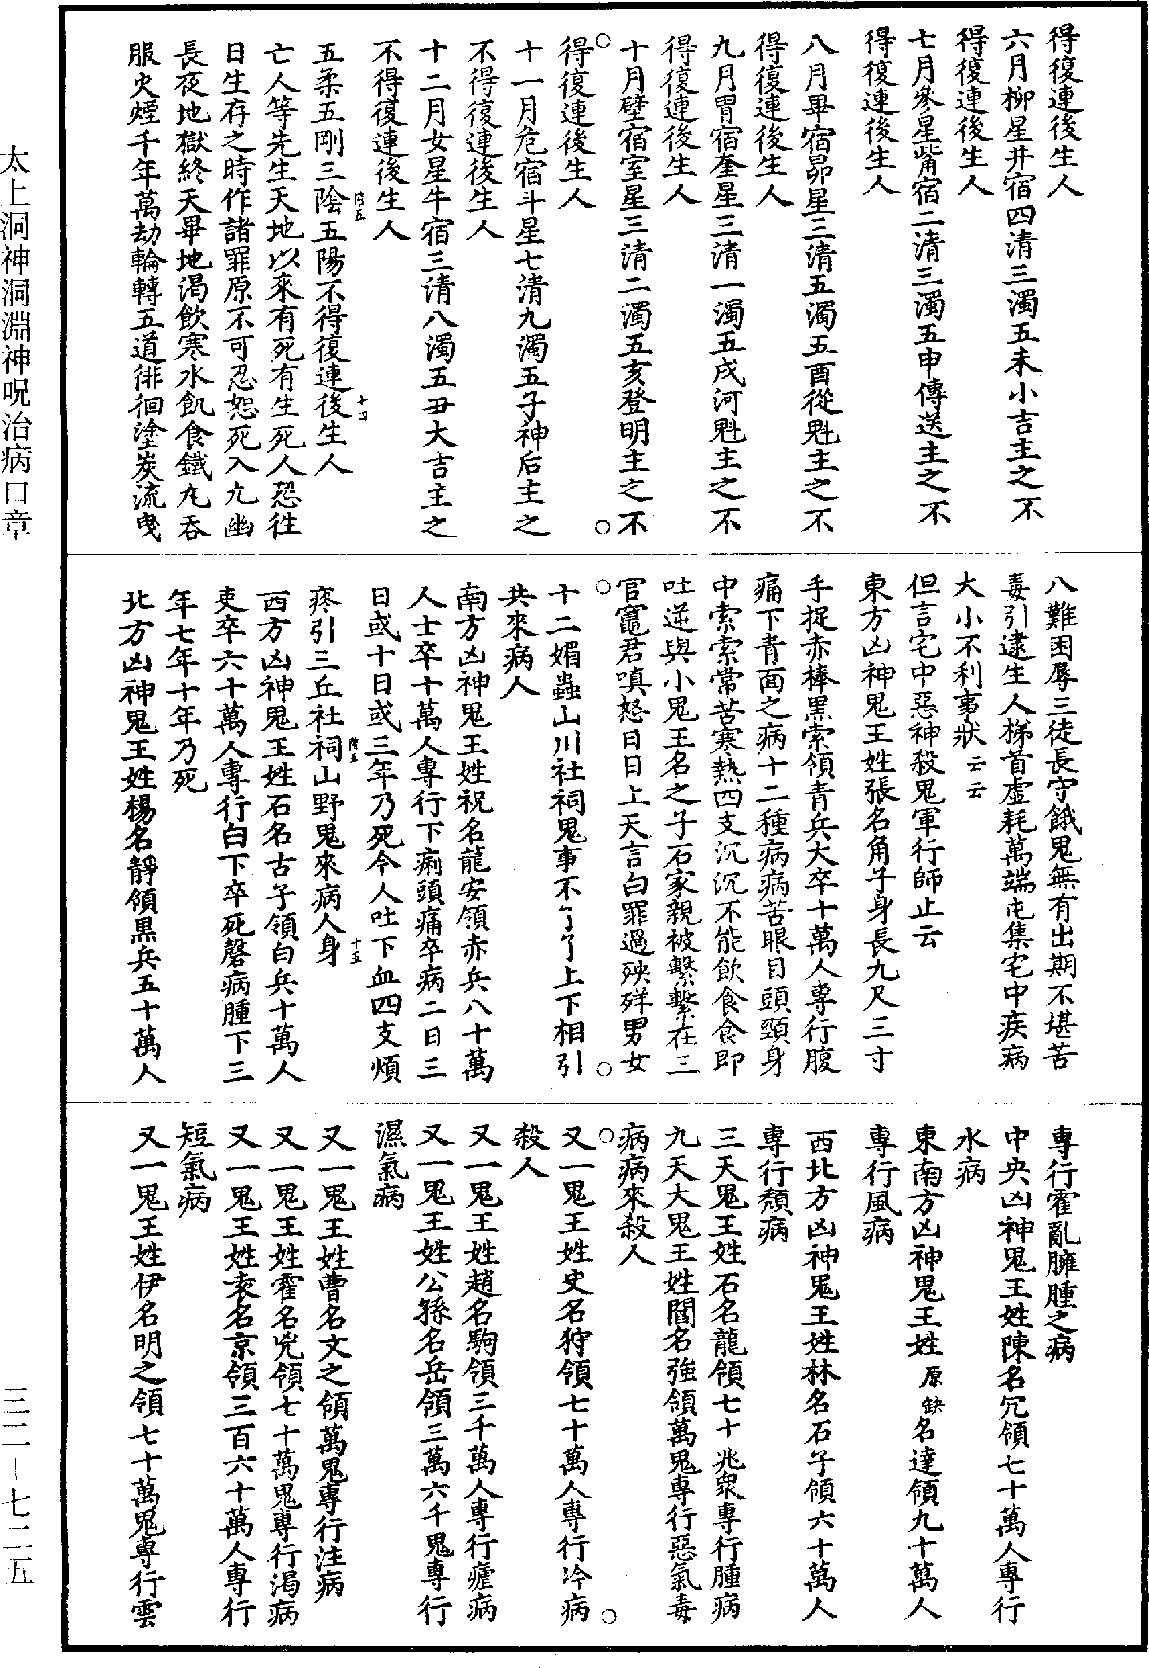 得復連後生人
六月柳星井宿四清三濁五未小吉主之不
得復連後生人
七月參星觜宿二清三濁五申傳送主之不
得復連後生人
八月畢宿昴星三清五濁五酉從魁主之不
得復連後生人
九月胃宿奎星三清一濁五戌河魁主之不
得復連後生人
十月壁宿室星三清二濁五亥登明主之不
得復連後生人
十一月危宿斗星七清九濁五子神后主之
不得復連後生人
十二月女星牛宿三清八濁五丑大吉主之
不得復連後生人
五柔五剛三陰五陽不得復連後生人
亡人等先生天地以來有死有生死人恐往
日生存之時作諸罪原不可忍恕死入九幽
長夜地獄終天畢地渴飲寒水飢食鐵丸吞
服火煙千年萬劫輪轉五道徘徊塗炭流曳
八難困辱三徒長守餓鬼無有出期不堪苦
毒引逮生人梯首虛耗萬端屯集宅中疾病
大小不利事狀云云
但言宅中惡神殺鬼軍行師止云
東方凶神鬼王姓張名角子身長九尺三寸
手捉赤棒黑索領青兵大卒十萬人專行腹
痛下青面之病十二種病病苦眼目頭頸身
中索索常苦寒熱四支沉沉不能飲食食即
吐逆與小鬼王名之子石家親被繫繫在三
官竈君嗔怒日日上天言白罪過殃殍男女
十二媚蠱山川社祠鬼事不了了上下相引
共來病人
南方凶神鬼王姓祝名龍安領赤兵八十萬
人士卒十萬人專行下痢頭痛卒病二日三
日或十日或三年乃死令人吐下血四支煩
疼引三丘社祠山野鬼來病人身
西方凶神鬼王姓石名古子領白兵十萬人
吏卒六十萬人專行白下卒死磬病腫下三
年七年十年乃死
北方凶神鬼王姓楊名靜領黑兵五十萬人
專行霍亂臃腫之病
中央凶神鬼王姓陳名冗領七十萬人專行
水病
東南方凶神鬼王姓原缺名達領九十萬人
專行風病
西北方凶神鬼王姓林名石子領六十萬人
專行頹病
三天鬼王姓石名龍領七十兆眾專行腫病
九天大鬼王姓閻名強領萬鬼專行惡氣毒
病病來殺人
又一鬼王姓史名狩領七十萬人專行冷病
殺人
又一鬼王姓趙名駒領三千萬人專行瘧病
又一鬼王姓公孫名岳領三萬六千鬼專行
濕氣病
又一鬼王姓曹名文之領萬鬼專行注病
又一鬼王姓霍名兇領七十萬鬼專行渴病
又一鬼王姓袁名京領三百六十萬人專行
短氣病
又一鬼王姓伊名明之領七十萬鬼專行雲
太上洞神洞淵神呪治病口章
三二－七二五